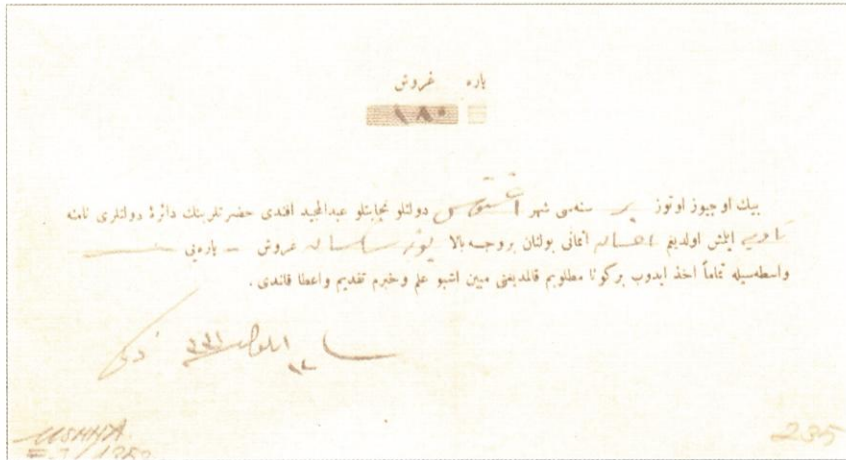 پاره غروش
١٨٠
بيك اوچيوز اوتوز بر سنه‌سى شهر اغستوس دولتلو نجابتلو عبدالمجيد افندى حضرتلرينك دائرهٔ دولتلرى نامنه
ايلمش اولديغم اثمانى بولنان بروجه بالا يوز سكسان غروش پاره‌يى
واسطه‌سيله تماماً اخذ ايدوب بركونا مطلوبم قالمديغنى مبين اشبو علم وخبرم تقديم واعطا قلندى.
١٢ ايلول ٣٣١
235